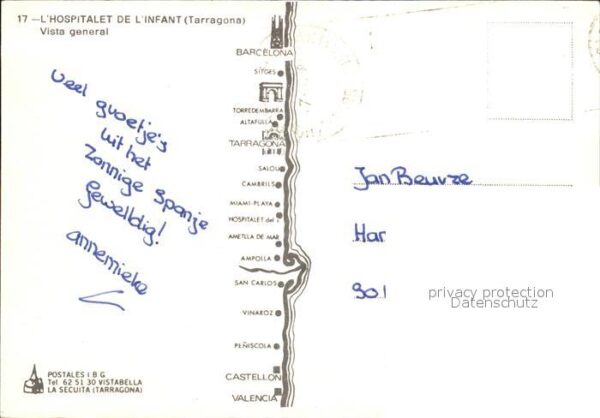 17 —L'HOSPITALET DE L'INFANT (Tarragona)
Vista general
Veel groetje's
uit het
Zonnige Spanje
Geweldig!
annemieke
BARCELONA
SITGES
TORREDEMBARRA
ALTAFULLA
TARRAGONA
SALOU
CAMBRILS
MIAMI-PLAYA
HOSPITALET del I
AMETLLA DE MAR
AMPOLLA
SAN CARLOS
VINAROZ
PEÑISCOLA
CASTELLON
VALENCIA
Jan
Har
301
privacy protection
Datenschutz
POSTALES I B G
Tel 62 51 30 VISTABELLA
LA SECUITA (TARRAGONA)